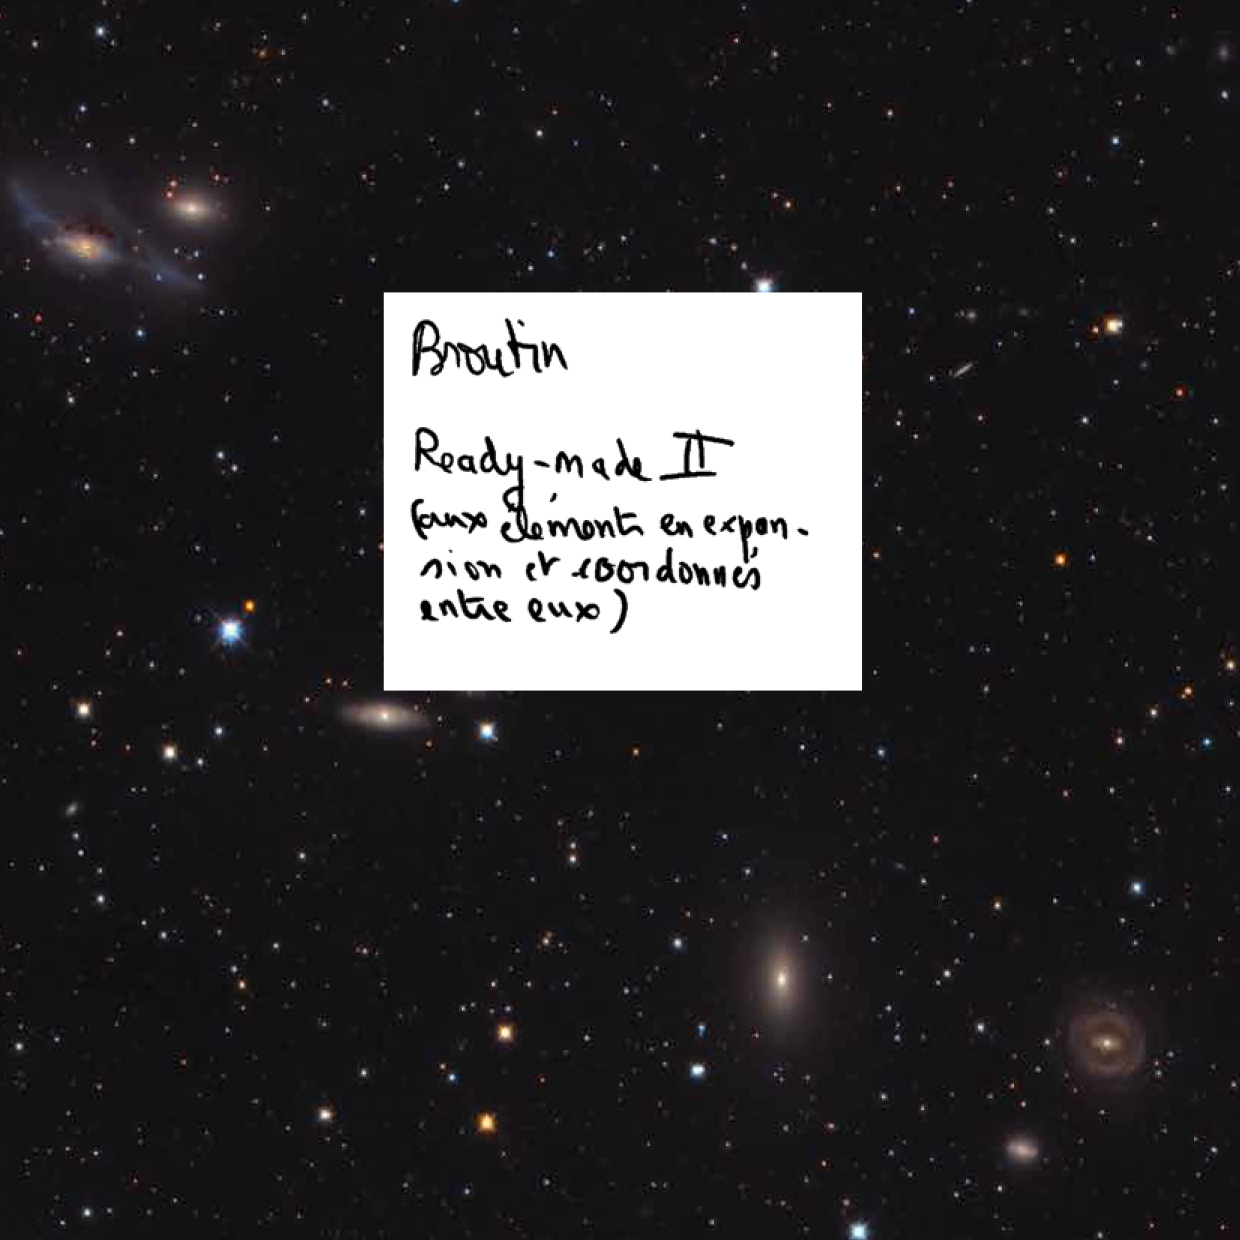 Broutin
Ready-made II
(aux éléments en expan-
sion et coordonnés
entre eux)